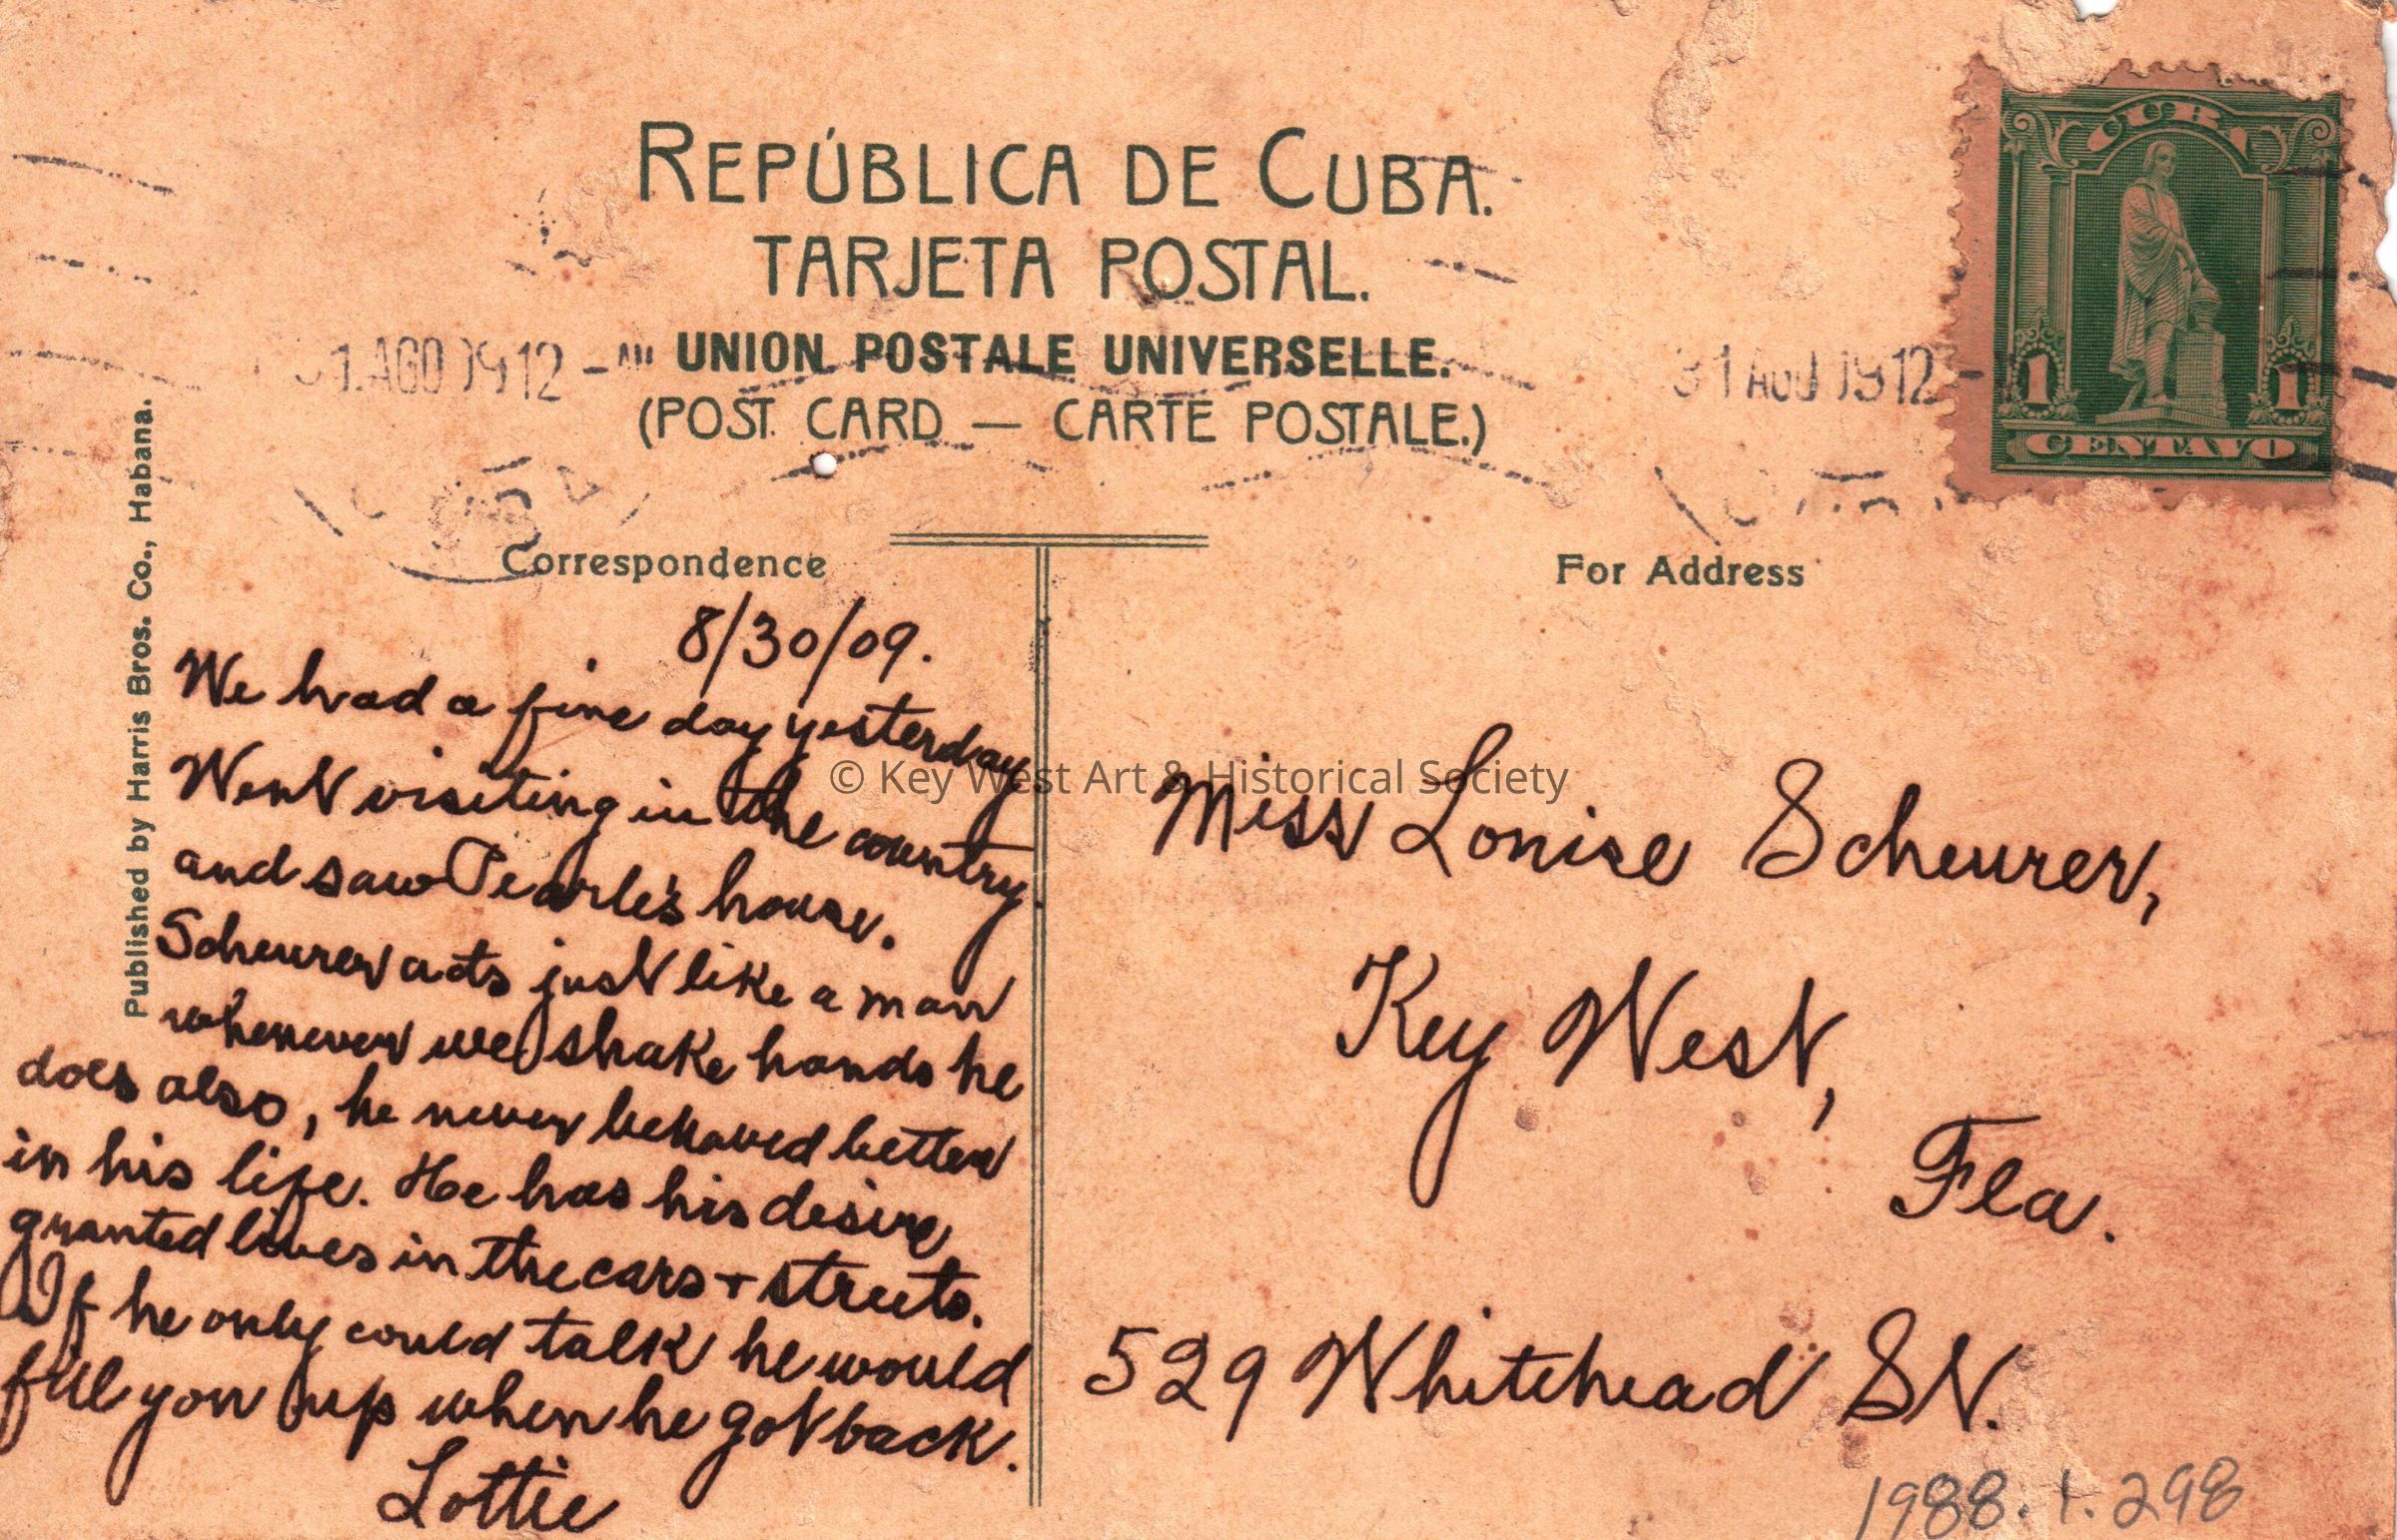 REPÚBLICA DE CUBA.
TARJETA POSTAL.
UNION POSTALE UNIVERSELLE.
(POST CARD — CARTE POSTALE.)
31 AGO 1912 - AM
31 AGO 1912 -
CUBA
1 1
CENTAVO
Published by Harris Bros. Co., Habana.
Correspondence
8/30/09.
We had a fine day yesterday
Went visiting in the country
and saw Pearle's house.
Scheurer acts just like a man
whenever we shake hands he
does also, he never behaved better
in his life. He has his desire
granted lives in the cars + streets.
If he only could talk he would
fill you up when he got back.
Lottie
For Address
Miss Louise Scheurer,
Key West,
Fla.
529 Whitehead St.
1988.1.298
© Key West Art & Historical Society